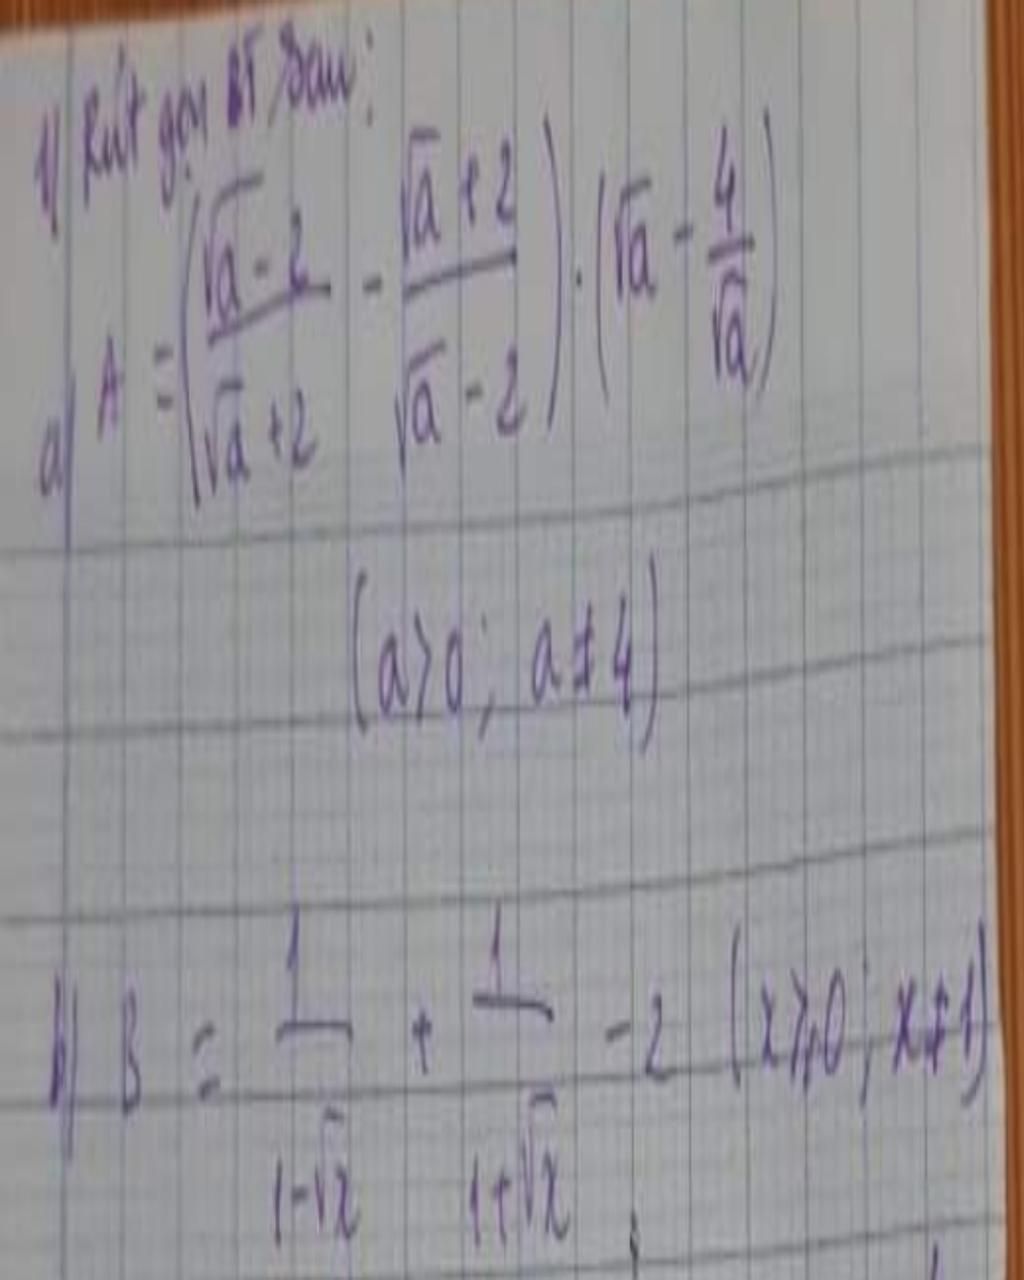 1) Rút gọn BT sau:
a) A = ((√a - 2)/(√a + 2) - (√a + 2)/(√a - 2)) . (√a - 4/√a)
(a > 0 ; a ≠ 4)
b) B = 1/(1-√x) + 1/(1+√x) - 2 (x ⩾ 0 ; x ≠ 1)